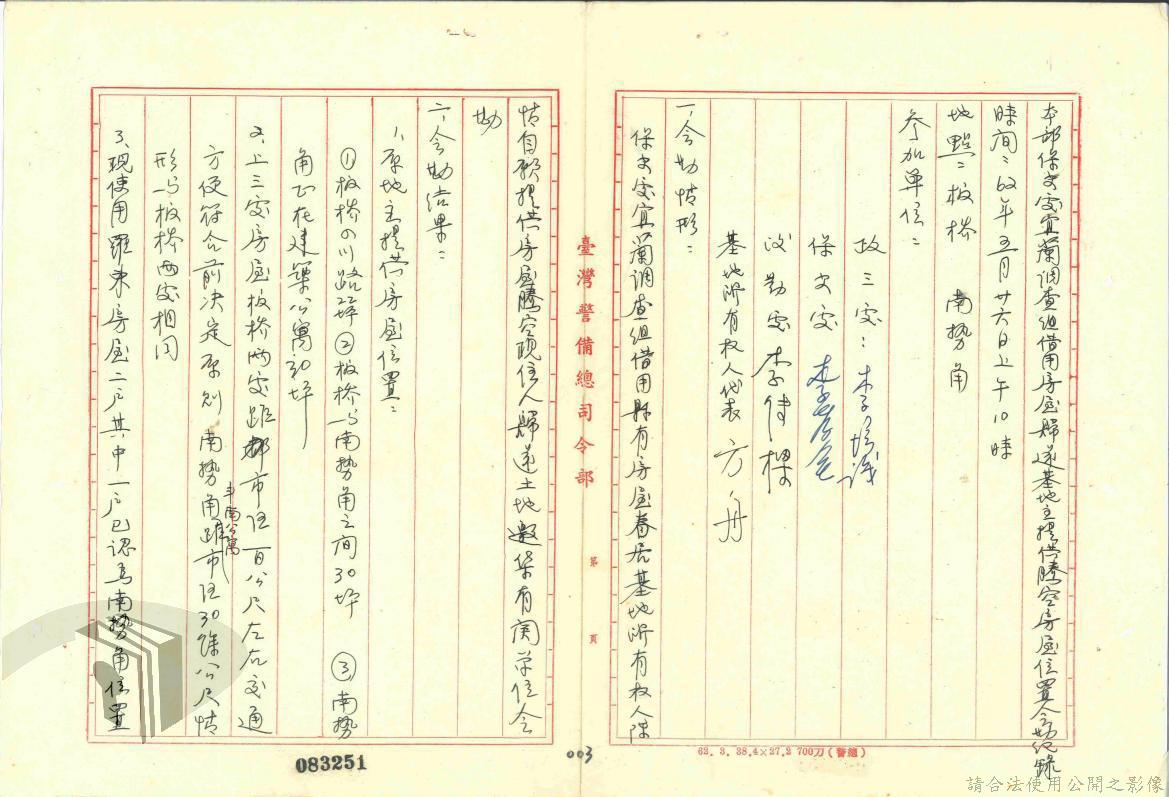 本部保安處宜蘭調查組借用房屋歸還基地主提供騰空房屋位置會勘紀錄
時间：62年五月廿六日上午10時
地點：板桥　南勢角
参加单位：
政三處：李
保安處
後勤處　李健樑
基地所有权人代表　方舟
一、会勘情形：
保安處宜蘭調查組借用縣有房屋眷居基地所有权人陳
情自願提供房屋騰空現住人歸還土地邀集有関单位会
勘
二、会勘结果：
1、原地主提供房屋位置：
①板桥四川路坪②板桥与南勢角之间30坪　③南勢
角正在建築公寓30坪
2、上三處房屋板桥两處距都市伍一百公尺左右交通
方便符合前決定原则南勢角距市伍30餘公尺情
形与板桥两處相同
3、現使用羅東房屋二户其中一户已認為南勢角位置
臺灣警備總司令部
第　頁
62. 3. 38.4×27.2 700刀(警總)
003
083251
請合法使用公開之影像